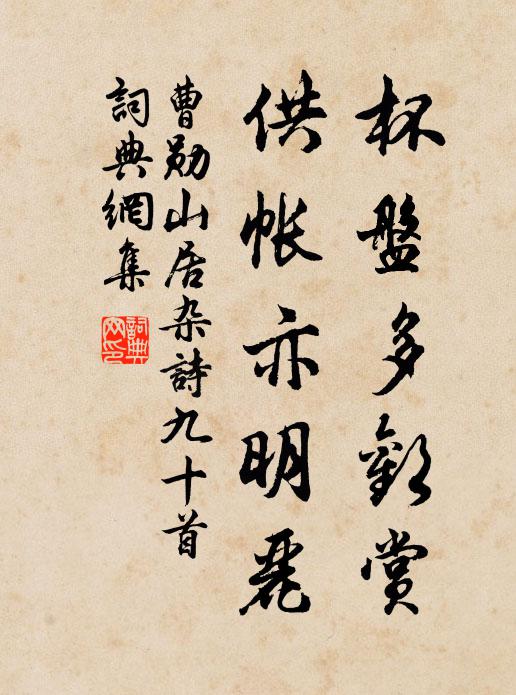 杯盤多歡賞
供帳亦明麗
曹勛山居杂詩九十首
詞典網集
詞典
网印